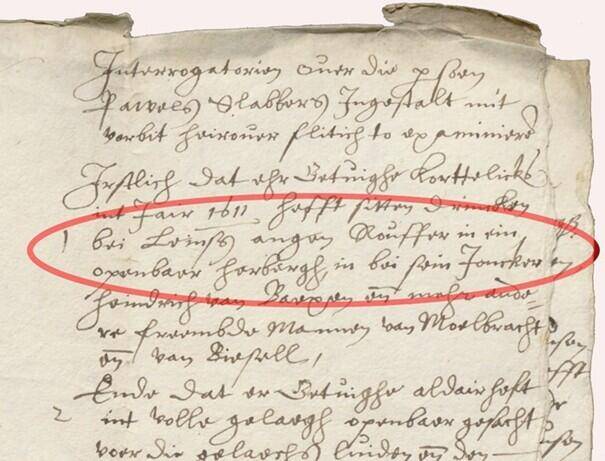 Interrogatorien ouer die psoen
Pawels Slabbers Ingestalt mit
vorbit heirouer flitich to examinieren
Irstlich dat ehr Getuighe korttelicks
int Jair 1611 hefft sitten drincken
1 bei Leinss angen Rouffer in ein
openbaer herbergh, in bei sein Joncker
heindrich van Baexen en mehr ande-
re freembde Mannen van Moelbracht
en van Biesell,
Ende dat er Getuighe aldair heft
2 int volle gelaegh openbaer gesacht
voer die gelaechs luiden en den